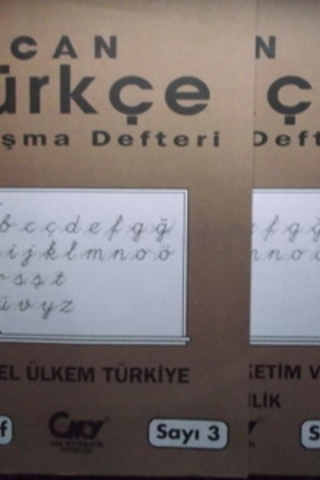 CAN
ürkçe
şma Defteri
b c ç d e f g ğ
i j k l m n o ö
s ş t
ü v y z
EL ÜLKEM TÜRKİYE
Sayı 3
N
Ç
Deft
f g ğ
n o
KETİM V
LİK
S